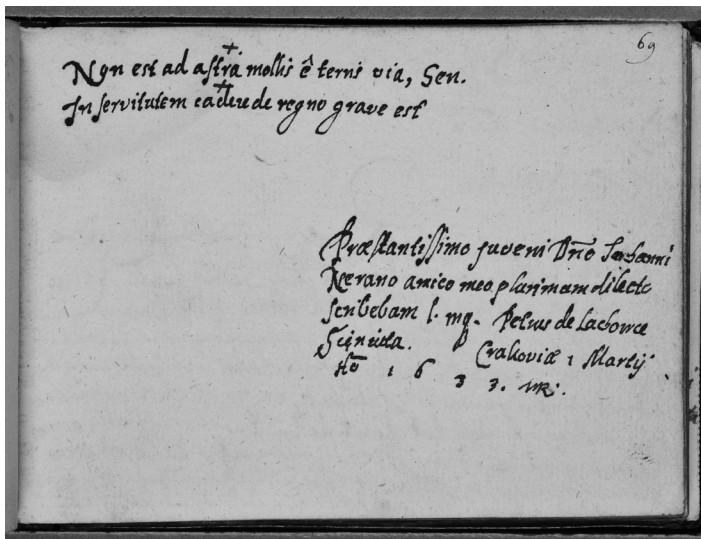 69
Non est ad astra mollis ê ternis via, Sen.
In servitutem cadeu de regno grave est
Præstantissimo juveni Dno Johanni
Nerano amico meo plurimum dilecto
scribebam l. mq. Petrus de Lachowce
Sieniuta. Cracoviæ 1 Martij
Ao 1 6 3 3.